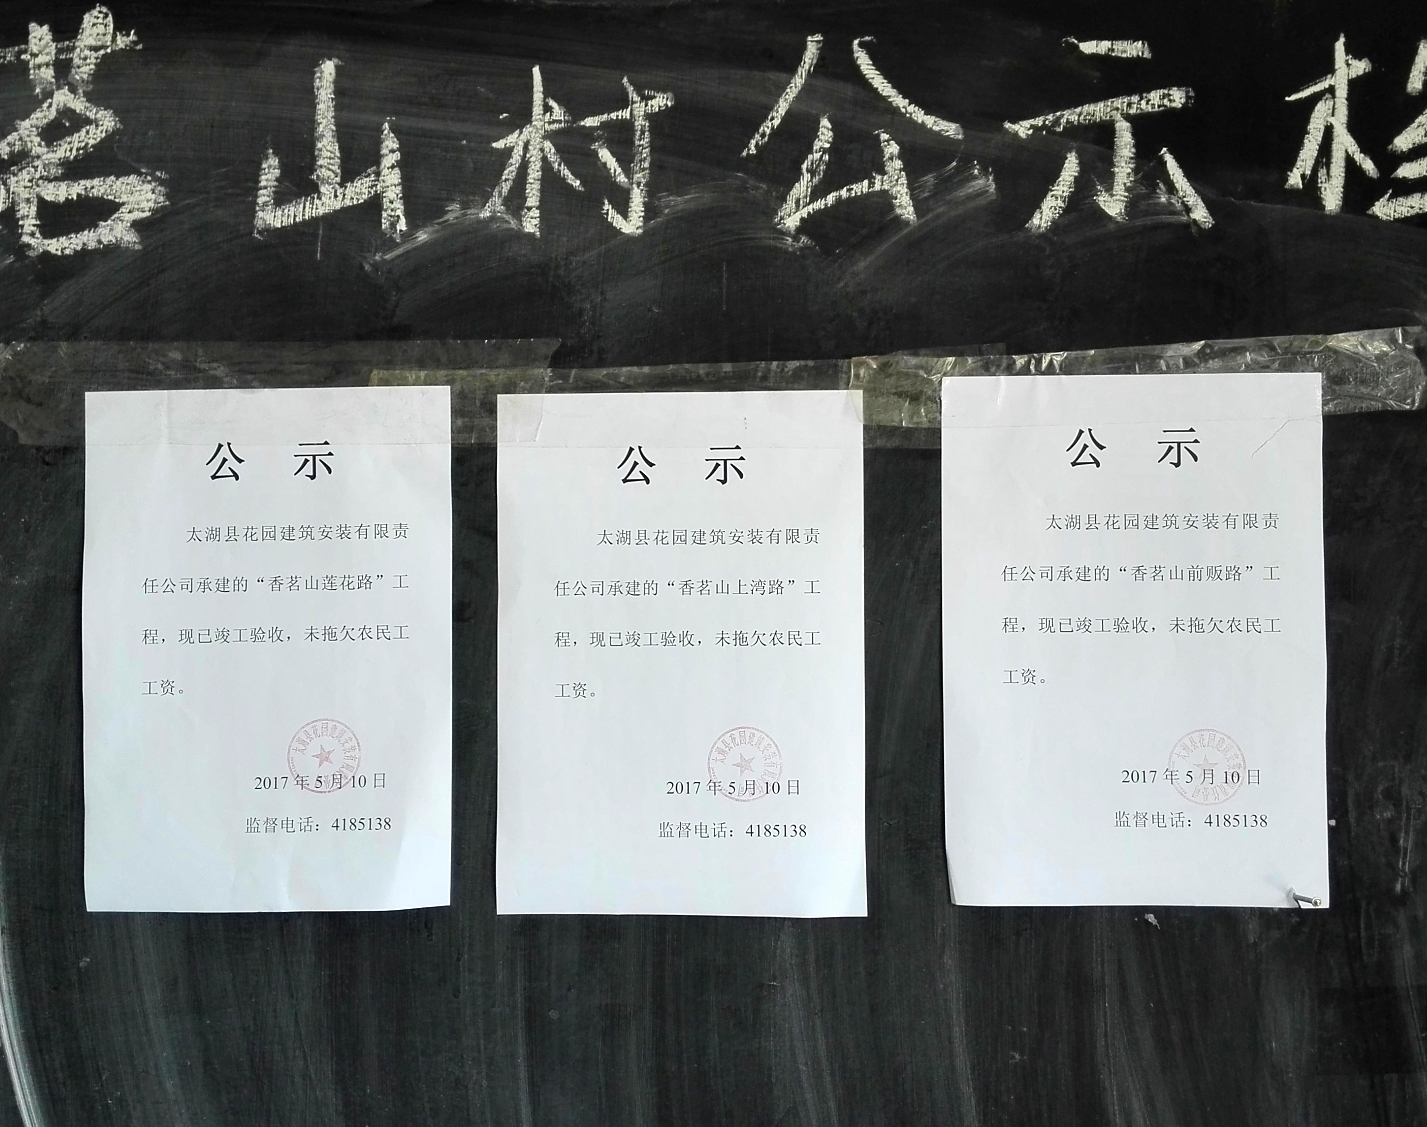 茗山村公示栏
公 示
太湖县花园建筑安装有限责
任公司承建的“香茗山莲花路”工
程，现已竣工验收，未拖欠农民工
工资。
2017 年 5 月 10 日
监督电话：4185138
公 示
太湖县花园建筑安装有限责
任公司承建的“香茗山上湾路”工
程，现已竣工验收，未拖欠农民工
工资。
2017 年 5 月 10 日
监督电话：4185138
公 示
太湖县花园建筑安装有限责
任公司承建的“香茗山前贩路”工
程，现已竣工验收，未拖欠农民工
工资。
2017 年 5 月 10 日
监督电话：4185138